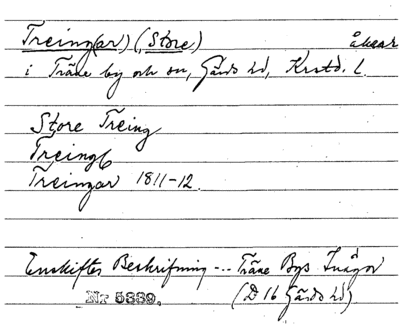 Treing(ar) (Store) åkrar
i Träne by och sn, Gärds hd, Krstd. L.
Store Treing
Treing
Treingar 1811-12.
Enskiftes Beskrifning --- Träne Bys Inägor
Nr 5339. (D 16 Gärds hd)